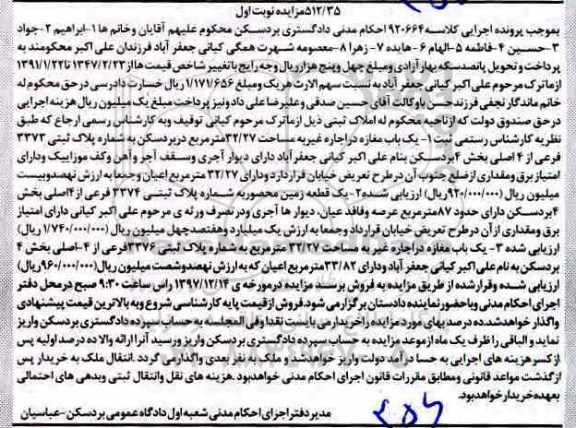 ۵۱۲/۳۵مزایده نوبت اول
بموجب پرونده اجرایی کلاسه ۹۲۰۶۶۴ احکام مدنی دادگستری بردسکن محکوم علیهم آقایان وخانم ها ۱-ابراهیم ۲-جواد
۳-حسین ۴-فاطمه ۵-الهام ۶-هایده ۷-زهرا ۸-معصومه شهرت همگی کیانی جعفر آباد فرزندان علی اکبر محکومند به
پرداخت و تحویل پانصدسکه بهار آزادی ومبلغ چهل وپنج هزارریال وجه رایج باتغییر شاخص قیمت هااز ۱۳۴۷/۲/۲۳تا ۱۳۹۱/۱/۲۲
ازماترک مرحوم علی اکبر کیانی جعفر آباد به نسبت سهم الارث هریک ومبلغ ۱/۱۷۱/۶۵۶ ریال خسارت دادرسی در حق محکوم له
خانم ماندگار نجفی فرزندحسن باوکالت آقای حسین صدقی وعلیرضا علی داد ونیز پرداخت مبلغ یک میلیون ریال هزینه اجرایی
در حق صندوق دولت که ازناحیه محکوم له املاک ثبتی ذیل ازماترک مرحوم کیانی توقیف وبه کارشناس رسمی ارجاع که طبق
نظریه کارشناس رسمی ثبت ۱- یک باب مغازه دراجاره غیربه مساحت ۳۲/۲۷مترمربع دربردسکن به شماره پلاک ثبتی ۳۳۷۳
فرعی از ۴ اصلی بخش ۴بردسکن بنام علی اکبر کیانی جعفرآباد دارای دیوار آجری وسقف آجر وآهن وکف موزاییک ودارای
امتیاز برق ومقداری از ضلع جنوب آن درطرح تعریض خیابان قراردارد ودارای ۳۲/۲۷ مترمربع اعیان وجمعا به ارزش نهصدوبیست
میلیون ریال (۹۲۰/۰۰۰/۰۰۰ریال) ارزیابی شده ۲-یک قطعه زمین محصوربه شماره پلاک ثبتی ۳۳۷۴ فرعی از ۴اصلی بخش
۴بردسکن دارای حدود ۸۷مترمربع عرصه وفاقد عیان، دیوار ها آجری ودر تصرف ورثه ی مرحوم علی اکبر کیانی دارای امتیاز
برق ومقداری از آن درطرح تعریض خیابان قرارداد وجمعا به ارزش یک میلیارد وهفتصدچهل میلیون ریال (۱/۷۴۰/۰۰۰/۰۰۰ ریال)
ارزیابی شده ۳- یک باب مغازه دراجاره غیر به مساحت ۳۲/۲۷ مترمربع به شماره پلاک ثبتی ۳۳۷۶فرعی از ۴-اصلی بخش ۴
بردسکن به نام علی اکبر کیانی جعفر آباد ودارای ۳۳/۸۲مترمربع اعیان که به ارزش نهصدوشصت میلیون ریال(۹۶۰/۰۰۰/۰۰۰ریال)
ارزیابی شده وقرارشده از طریق مزایده به فروش برسد مزایده درمورخه ی ۱۳۹۷/۱۲/۱۴ راس ساعت ۹:۳۰ صبح در محل دفتر
اجرای احکام مدنی وباحضور نماینده دادستان برگزار می شود.فروش از قیمت پایه کارشناسی شروع وبه بالاترین قیمت پیشنهادی
واگذار خواهدشد.ده درصد بهای مورد مزایده راخریدار می بایست نقدا وفی المجلسه به حساب سپرده دادگستری بردسکن واریز
نماید و الباقی را ظرف یک ماه از موعد مزایده به حساب سپرده دادگستری بردسکن واریز ورسید آنرا ارائه والاده درصد اولیه پس
از کسر هزینه های اجرایی به حساب درآمد دولت واریز خواهدشد و ملک به نفر بعدی واگذار می گردد .انتقال ملک به خریدار پس
از گذشت مواعد قانونی ومطابق مقررات قانون اجرای احکام مدنی خواهدبود .هزینه های نقل وانتقال ثبتی وبدهی های احتمالی
بعهده خریدار خواهدبود.
مدیر دفتر اجرای احکام مدنی شعبه اول دادگاه عمومی بردسکن-عباسیان